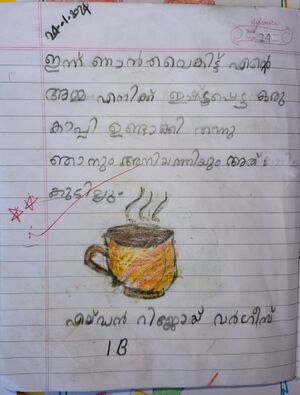 24-1-2024
24
ഇന്ന് ഞാൻ വൈകിട്ട് എന്റെ
അമ്മ എനിക്ക് ഇഷ്ട്ടപ്പെട്ട ഒരു
കാപ്പി ഉണ്ടാക്കി തന്നു
ഞാനും അനിയത്തിയും അത്
കുടിച്ചു.
എയ്ഡൻ റിജ്ജോയ് വർഗീസ്
1B